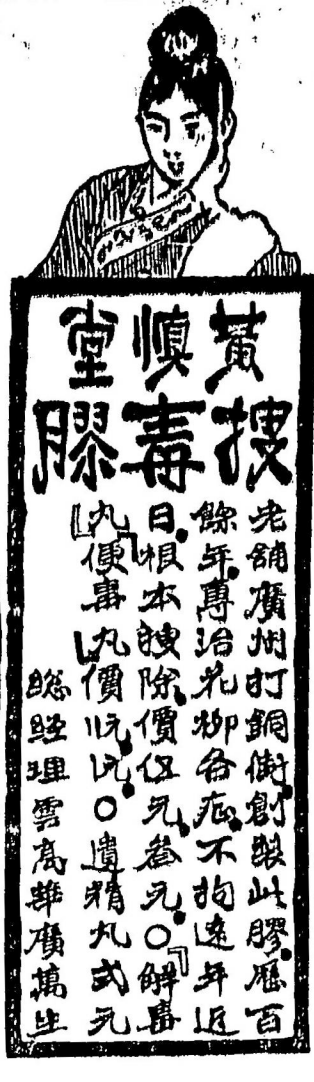 黃慎堂
搜毒膠
老舖廣州打銅街．創製此膠．歷百
餘年．專治花柳各症．不拘遠年近
日．根本搜除．價伍元．叁元．○「解毒
丸」「便毒丸」價○遺精丸弍元
總經理雲高華廣萬生